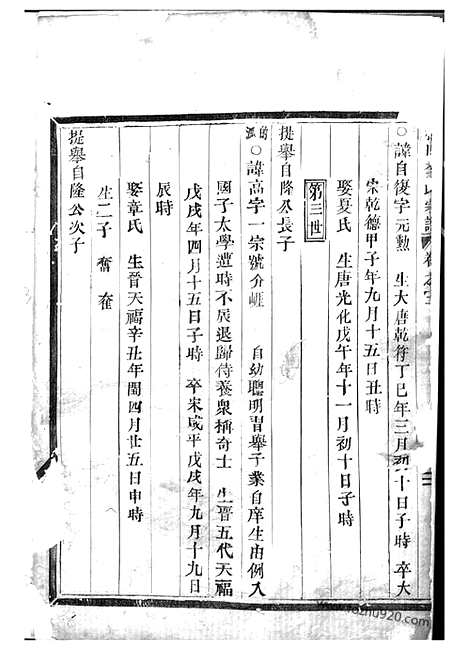 ○諱自復字元勲　生大唐乾符丁巳年三月初十日子時　卒大
宋乾德甲子年九月十五日丑時
娶夏氏　生唐光化戊午年十一月初十日子時
第三世
提舉自隆公長子
○諱高字一宗號分崕　自幼聰明習舉子業自庠生由例入
國子太學遭時不辰退歸侍養衆稱奇士　生晉五代天福
戊戌年四月十五日子時　卒宋咸平戊戌年九月十九日
辰時
娶章氏　生晉天福辛丑年閏四月廿五日申時
生二子　奮　奞
提舉自隆公次子
www.fozhu920.com